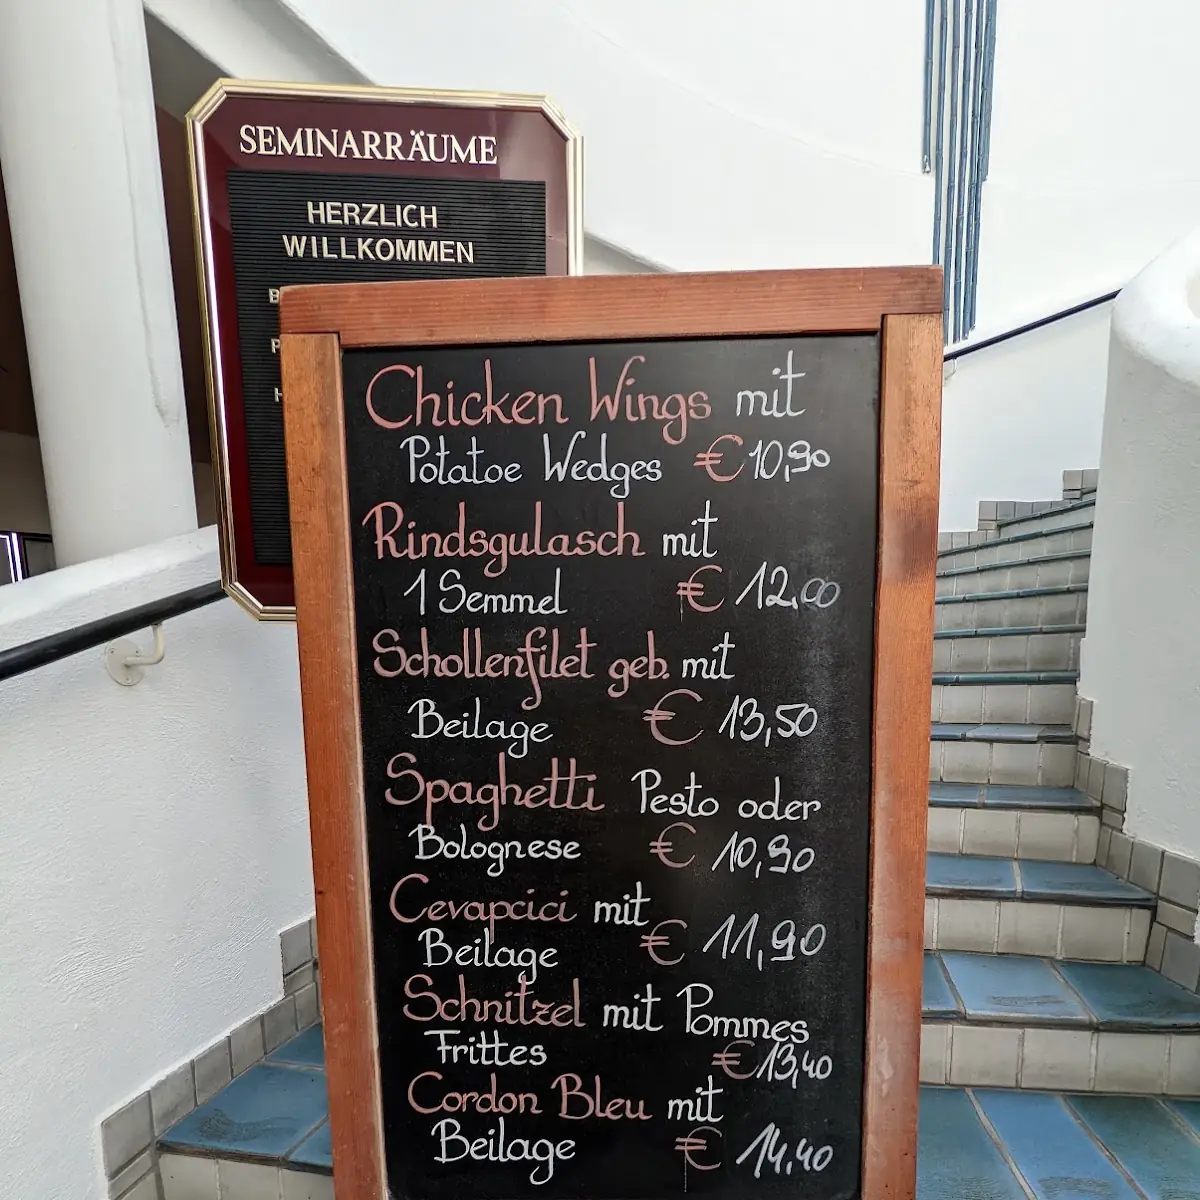 SEMINARRÄUME
HERZLICH
WILLKOMMEN
Chicken Wings mit
Potatoe Wedges €10,90
Rindsgulasch mit
1 Semmel € 12,00
Schollenfilet geb. mit
Beilage € 13,50
Spaghetti Pesto oder
Bolognese € 10,90
Cevapcici mit
Beilage € 11,90
Schnitzel mit Pommes
Frittes €13,40
Cordon Bleu mit
Beilage € 14,40